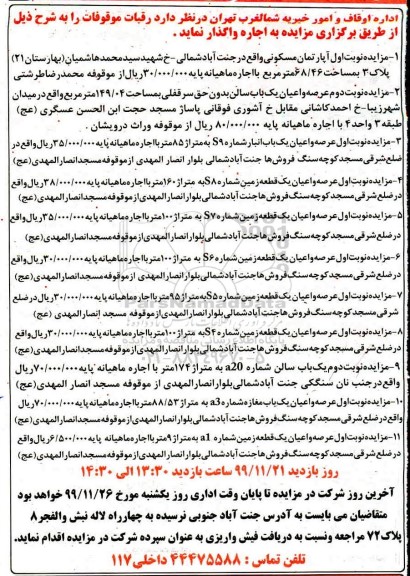 اداره اوقاف و امور خیریه شمالغرب تهران درنظر دارد رقبات موقوفات را به شرح ذیل
از طریق برگزاری مزایده به اجاره واگذار نماید .
۱-مزایده نوبت اول آپارتمان مسکونی واقع در جنت آبادشمالی-خ شهید سید محمد هاشمیان(بهارستان۲۱)
پلاک۳ بمساحت ۶۸/۴۶ مترمربع با اجاره ماهیانه پایه ۳۰/۰۰۰/۰۰۰ ریال از موقوفه محمدرضا طرشتی
۲-مزایده نوبت دوم عرصه واعیان یک باب سالن بدون حق سرقفلی به مساحت ۱۴۹/۰۴ مترمربع واقع درمیدان
شهرزیبا-خ احمدکاشانی مقابل خ آشوری فوقانی پاساژ مسجد حجت ابن الحسن عسگری (عج)
طبقه۳ واحد۴ با اجاره ماهیانه پایه ۸۰/۰۰۰/۰۰۰ ریال از موقوفه وراث درویشان .
۳-مزایده نوبت اول عرصه واعیان یک باب انبار شماره S۹ به متراژ ۸۵ متر با اجاره ماهیانه پایه ۳۵/۰۰۰/۰۰۰ ریال واقع در
ضلع شرقی مسجد کوچه سنگ فروش ها جنت آبادشمالی بلوار انصار المهدی از موقوفه مسجد انصار المهدی(عج)
۴-مزایده نوبت اول عرصه واعیان یک قطعه زمین شماره S۸ به متراژ ۱۶۰ متر با اجاره ماهیانه پایه ۳۸/۰۰۰/۰۰۰ ریال واقع
در ضلع شرقی مسجد کوچه سنگ فروش ها جنت آبادشمالی بلوار انصار المهدی از موقوفه مسجد انصار المهدی(عج)
۵-مزایده نوبت اول عرصه واعیان یک قطعه زمین شماره S۷ به متراژ ۱۰۰ متر با اجاره ماهیانه پایه ۳۵/۰۰۰/۰۰۰ ریال واقع
در ضلع شرقی مسجد کوچه سنگ فروش ها جنت آبادشمالی بلوار انصار المهدی از موقوفه مسجد انصار المهدی(عج)
۶-مزایده نوبت اول عرصه واعیان یک قطعه زمین شماره S۶ به متراژ ۱۰۰ متر با اجاره ماهیانه پایه ۳۰/۰۰۰/۰۰۰ ریال واقع
در ضلع شرقی مسجد کوچه سنگ فروش ها جنت آبادشمالی بلوار انصار المهدی از موقوفه مسجد انصار المهدی(عج)
۷-مزایده نوبت اول عرصه واعیان یک قطعه زمین شماره S۵ به متراژ ۹۵ متر با اجاره ماهیانه پایه ۳۰/۰۰۰/۰۰۰ ریال در ضلع
شرقی مسجد کوچه سنگ فروش ها جنت آبادشمالی بلوار انصار المهدی از موقوفه مسجد انصار المهدی(عج)
۸-مزایده نوبت اول عرصه واعیان یک قطعه زمین شماره S۴ به متراژ ۱۰۰ متر با اجاره ماهیانه پایه ۳۰/۰۰۰/۰۰۰ ریال واقع
در ضلع شرقی مسجد کوچه سنگ فروش ها جنت آبادشمالی بلوار انصار المهدی از موقوفه مسجد انصار المهدی(عج)
۹-مزایده نوبت دوم یک باب سالن شماره a۲۰ به متراژ ۱۷۴ متر با اجاره ماهیانه پایه ۷۰/۰۰۰/۰۰۰ ریال
واقع درجنب نان سنگکی جنت آبادشمالی بلوار انصار المهدی از موقوفه مسجد انصار المهدی(عج)
۱۰-مزایده نوبت اول یک باب مغازه شماره a۳ به متراژ ۸۸/۵۳ متر با اجاره ماهیانه پایه ۷۰/۰۰۰/۰۰۰ ریال
واقع در ضلع شرقی مسجد کوچه سنگ فروش ها جنت آبادشمالی بلوار انصار المهدی از موقوفه مسجد انصار المهدی(عج)
۱۱-مزایده نوبت اول عرصه واعیان یک قطعه زمین شماره a۱ به متراژ ۹ متر با اجاره ماهیانه پایه ۶/۵۰۰/۰۰۰ ریال واقع
در ضلع شرقی مسجد کوچه سنگ فروش ها جنت آبادشمالی بلوار انصار المهدی از موقوفه مسجد انصار المهدی(عج)
روز بازدید ۹۹/۱۱/۲۱ ساعت بازدید ۱۳:۳۰ الی ۱۴:۳۰
آخرین روز شرکت در مزایده تا پایان وقت اداری روز یکشنبه مورخ ۹۹/۱۱/۲۶ خواهد بود
متقاضیان می بایست به آدرس جنت آباد جنوبی نرسیده به چهارراه لاله نبش والفجر۸
پلاک۷۲ مراجعه ونسبت به دریافت فیش واریزی به عنوان سپرده شرکت در مزایده اقدام نماید.
تلفن تماس : ۴۴۴۷۵۵۸۸ داخلی۱۱۷